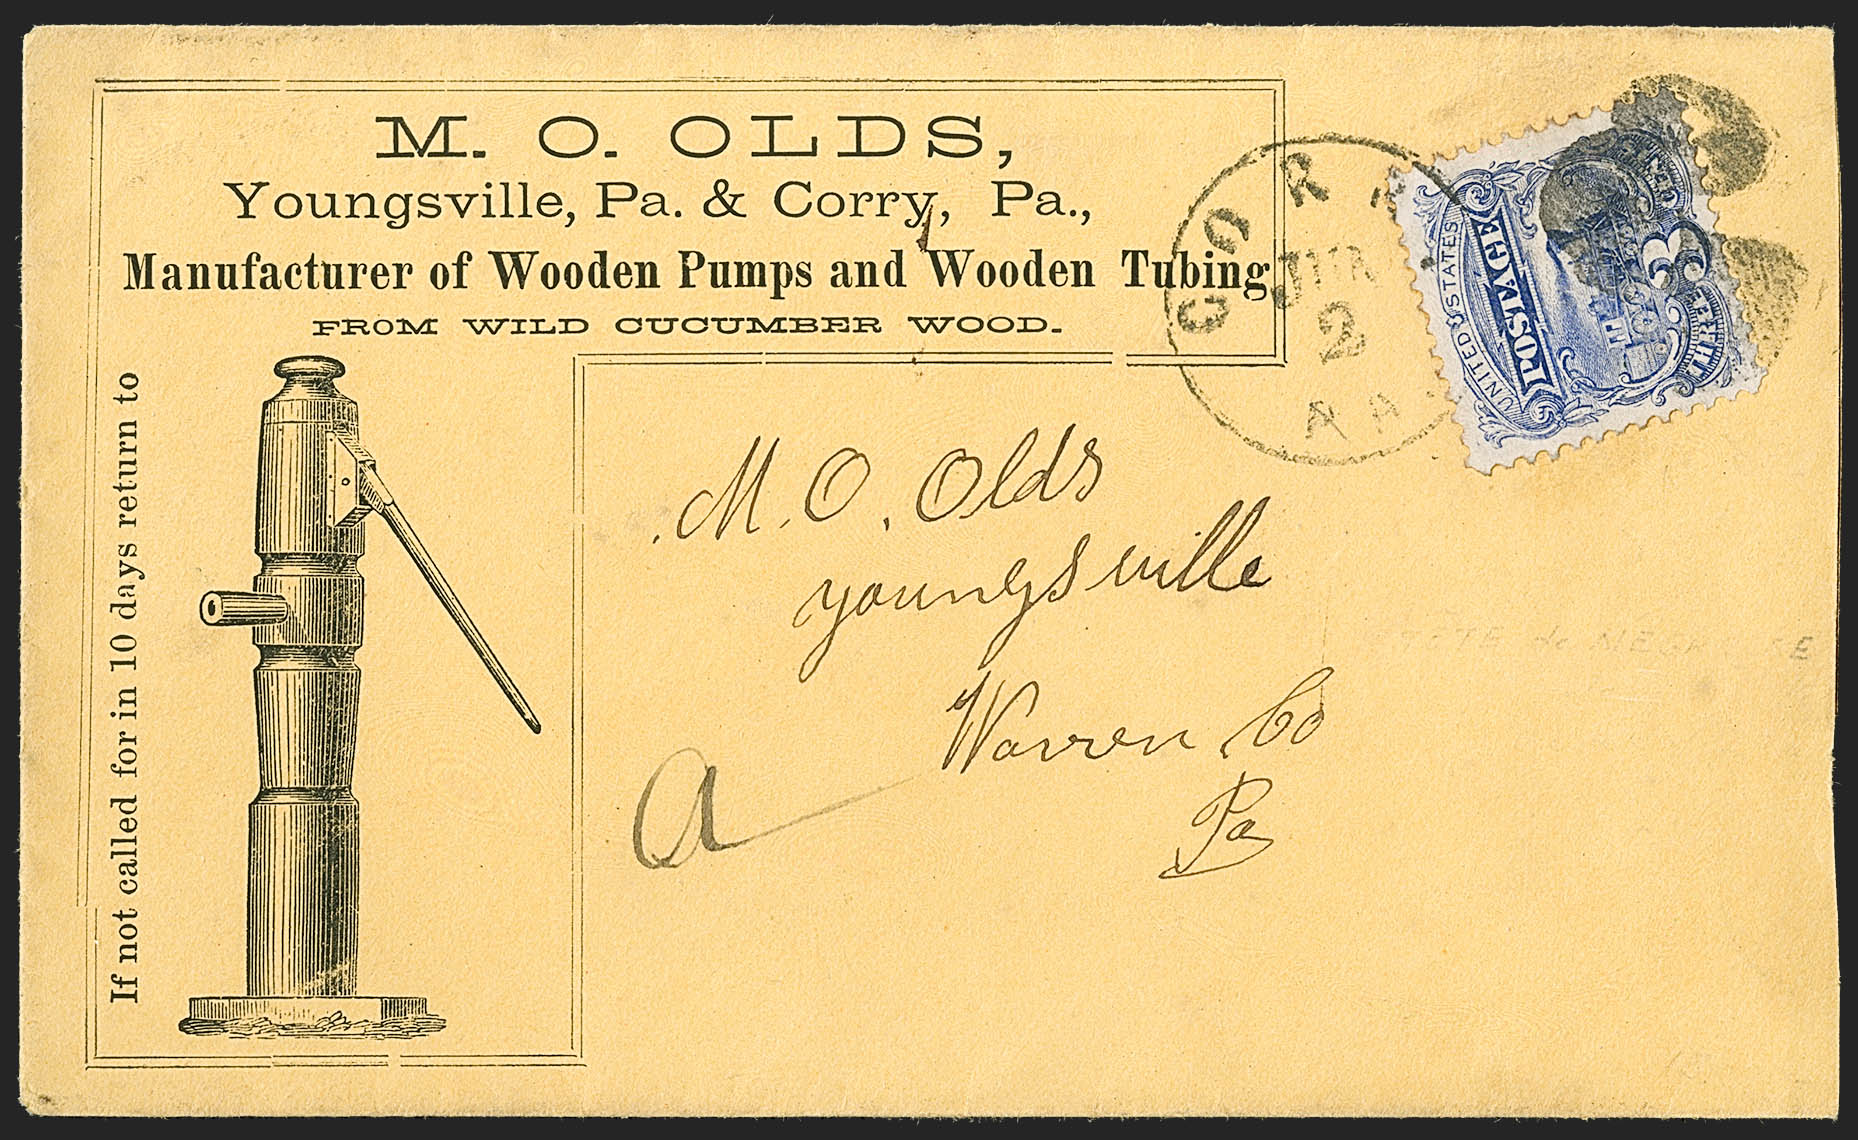 M. O. OLDS,
Youngsville, Pa. & Corry, Pa.,
Manufacturer of Wooden Pumps and Wooden Tubing
FROM WILD CUCUMBER WOOD.
If not called for in 10 days return to
CORRY
2
PA
UNITED STATES
POSTAGE
3
M. O. Olds
Youngsville
Warren Co
Pa
a